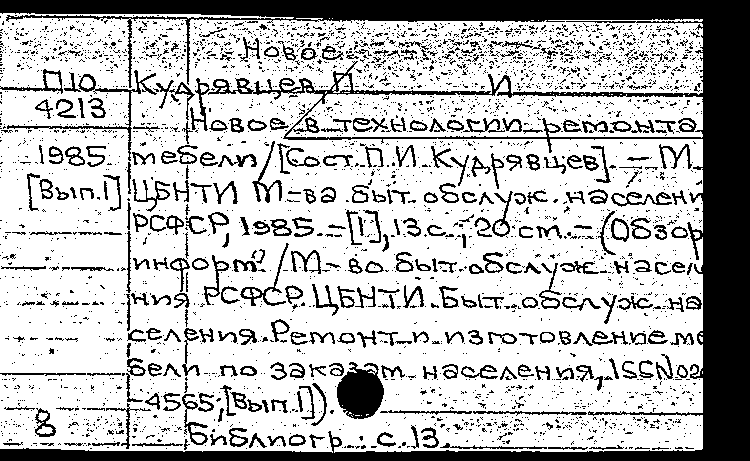 Новое
П10 Кудрявцев, П И
4213 Новое в технологии ремонта
1985 мебели / [Сост. П.И. Кудрявцев]. – М.
[Вып.1] ЦБНТИ М-ва быт. обслуж. населени
РСФСР, 1985. – [1], 13 с.; 20 см. – (Обзор
информ. / М-во быт. обслуж. насел
ния РСФСР. ЦБНТИ. Быт. обслуж. на
селения. Ремонт и изготовление ме
бели по заказам населения, ISSN 02
-4565; [Вып.1]).
8 Библиогр.: с. 13.